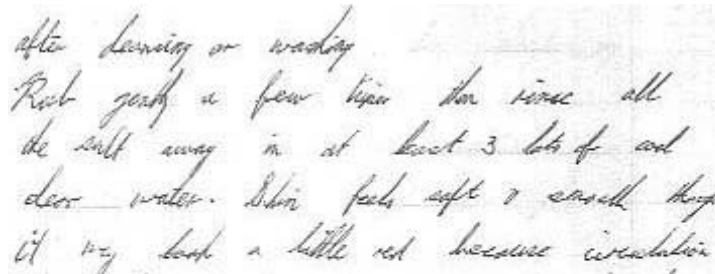 after cleaning or washing.
Rub gently a few times then rinse all
the salt away in at least 3 lots of cool
clear water. Skin feels soft & smooth though
it may look a little red because circulation